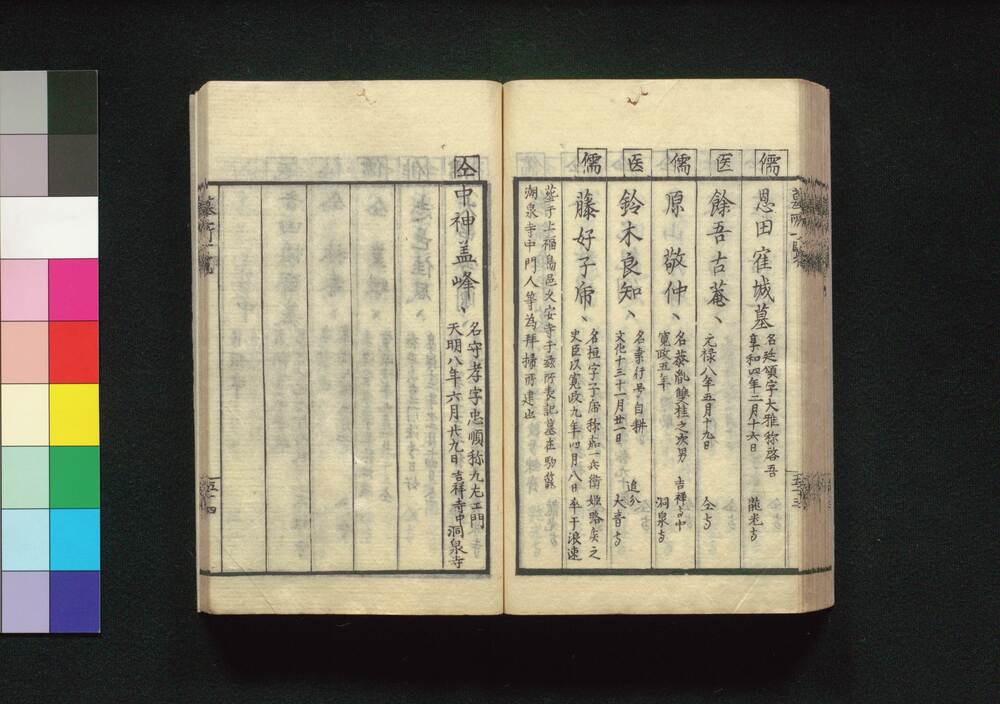 儒
恩田寉城墓
名廷頌字大雅称啓吾
享和四年二月十六日
龍光寺
医
餘吾古菴、
元禄八年五月十九日
仝寺
儒
原敬仲、
名恭胤雙桂之次男
寛政五年
吉祥寺中
洞泉寺
医
鈴木良知、
名素行号自耕
文化十三十一月廿一日
追分
大音寺
儒
藤好子
名垣字子
称嘉一兵衛姫路矦之
史臣以寛政九年四月八日卒于浪速
葬于上福島邑久安寺于
湖泉寺中門人等為拜掃所建也
仝
中神盖峰、
名守孝字忠順称九左エ門
天明八年六月廿九日
吉祥寺中洞泉寺
墓所一覧
五十四